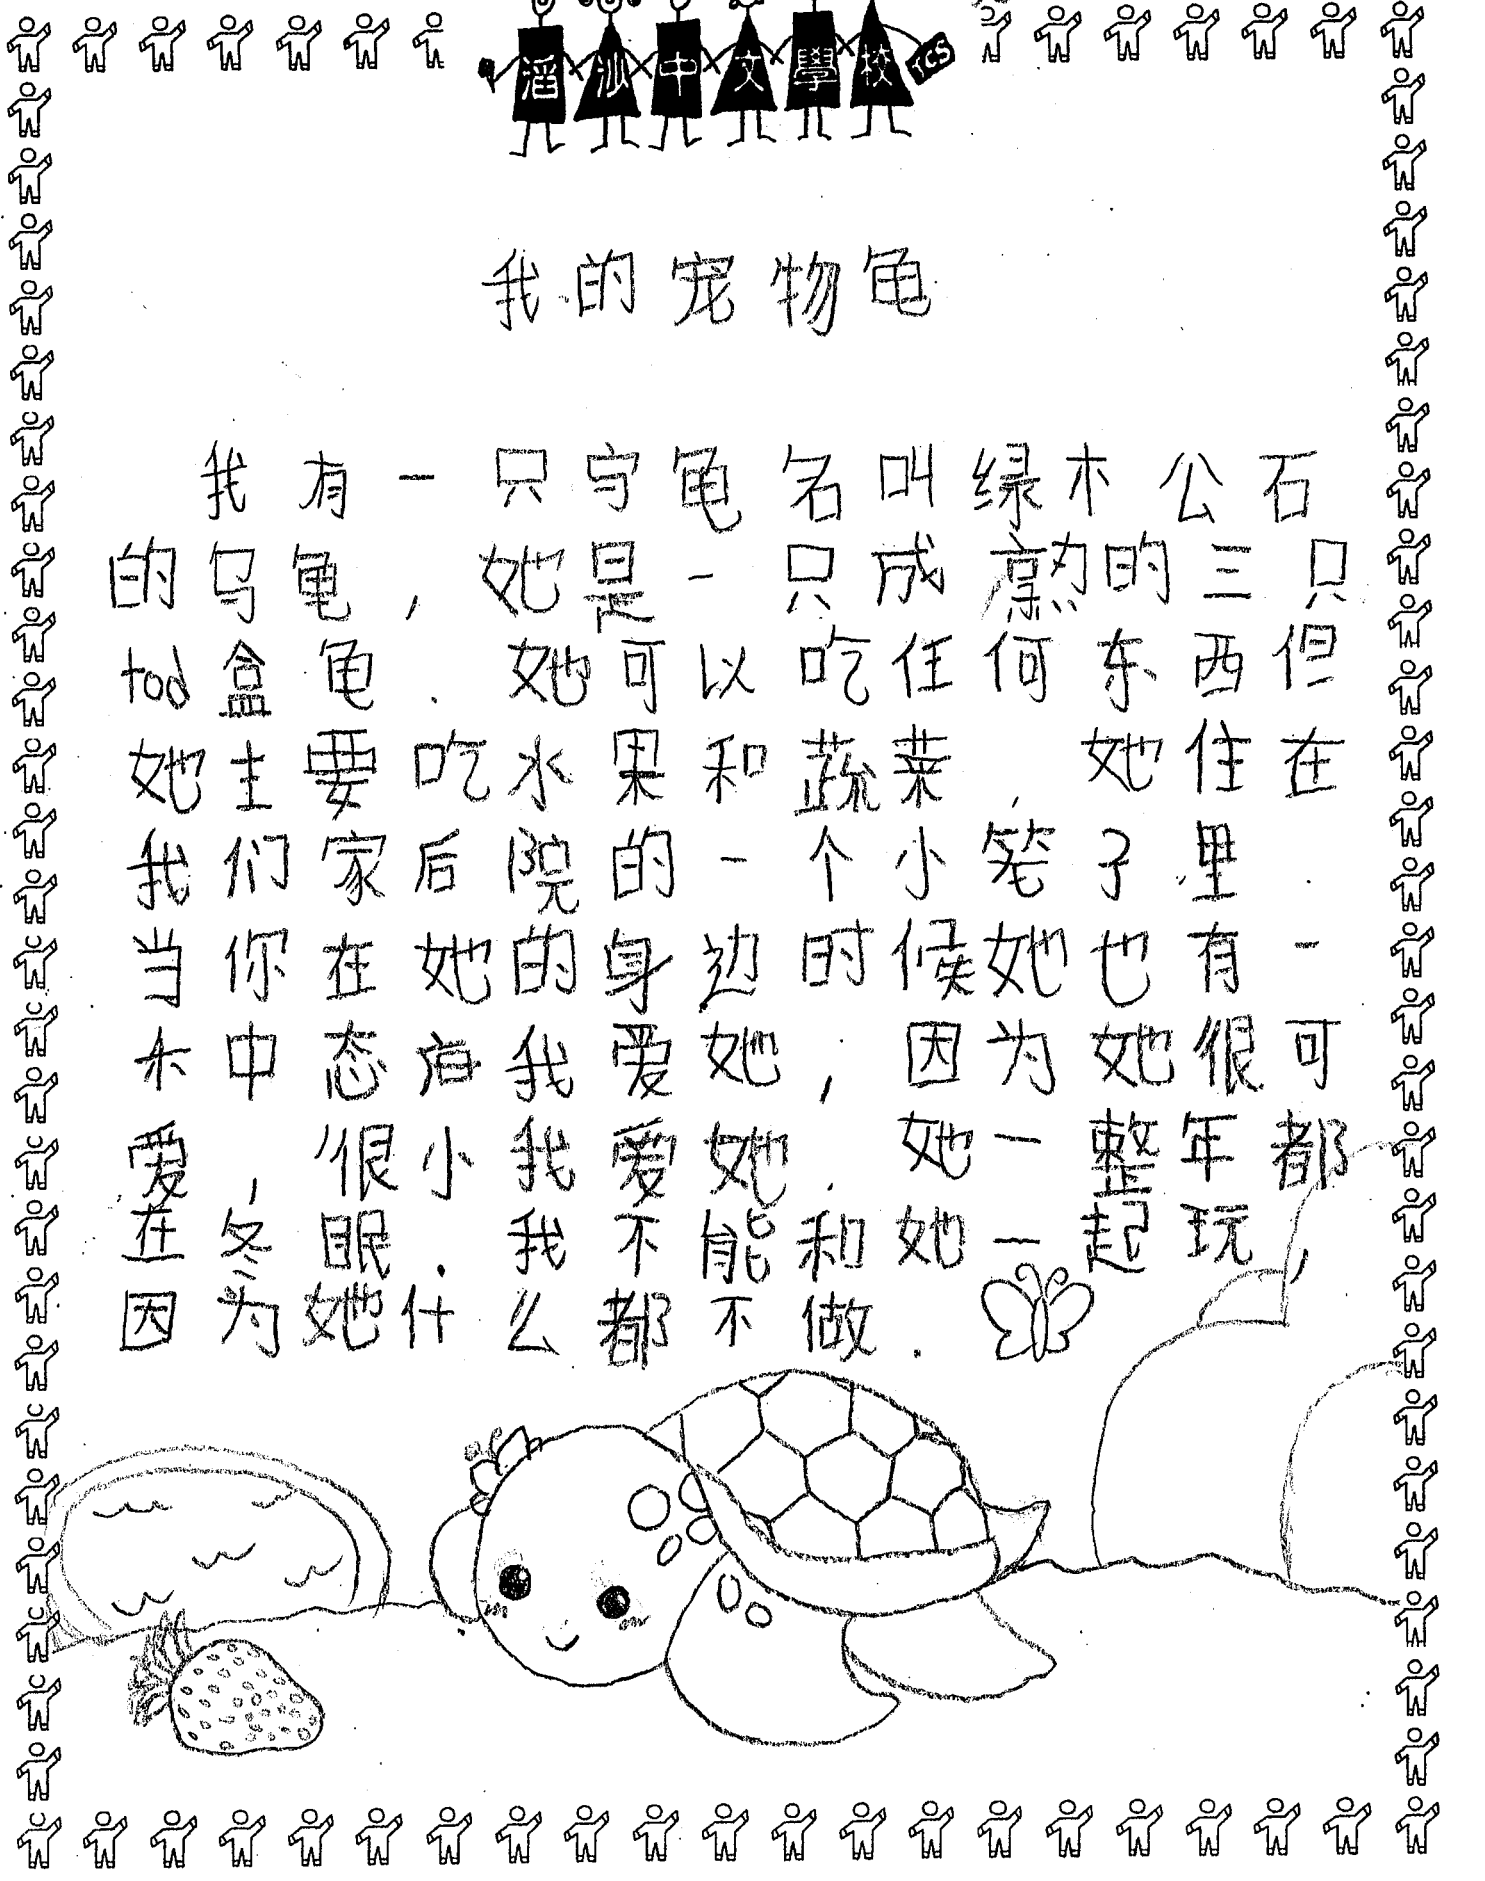 滔沙中文學校 TCS
我的宠物龟
我有一只乌龟名叫绿木公石
的乌龟，她是一只成熟的三只
tod盒龟．她可以吃任何东西但
她主要吃水果和蔬菜．她住在
我们家后院的一个小笼子里．
当你在她的身边时候她也有一
禾中态度我爱她，因为她很可
爱，很小我爱她．她一整年都
在冬眠．我不能和她一起玩，
因为她什么都不做．